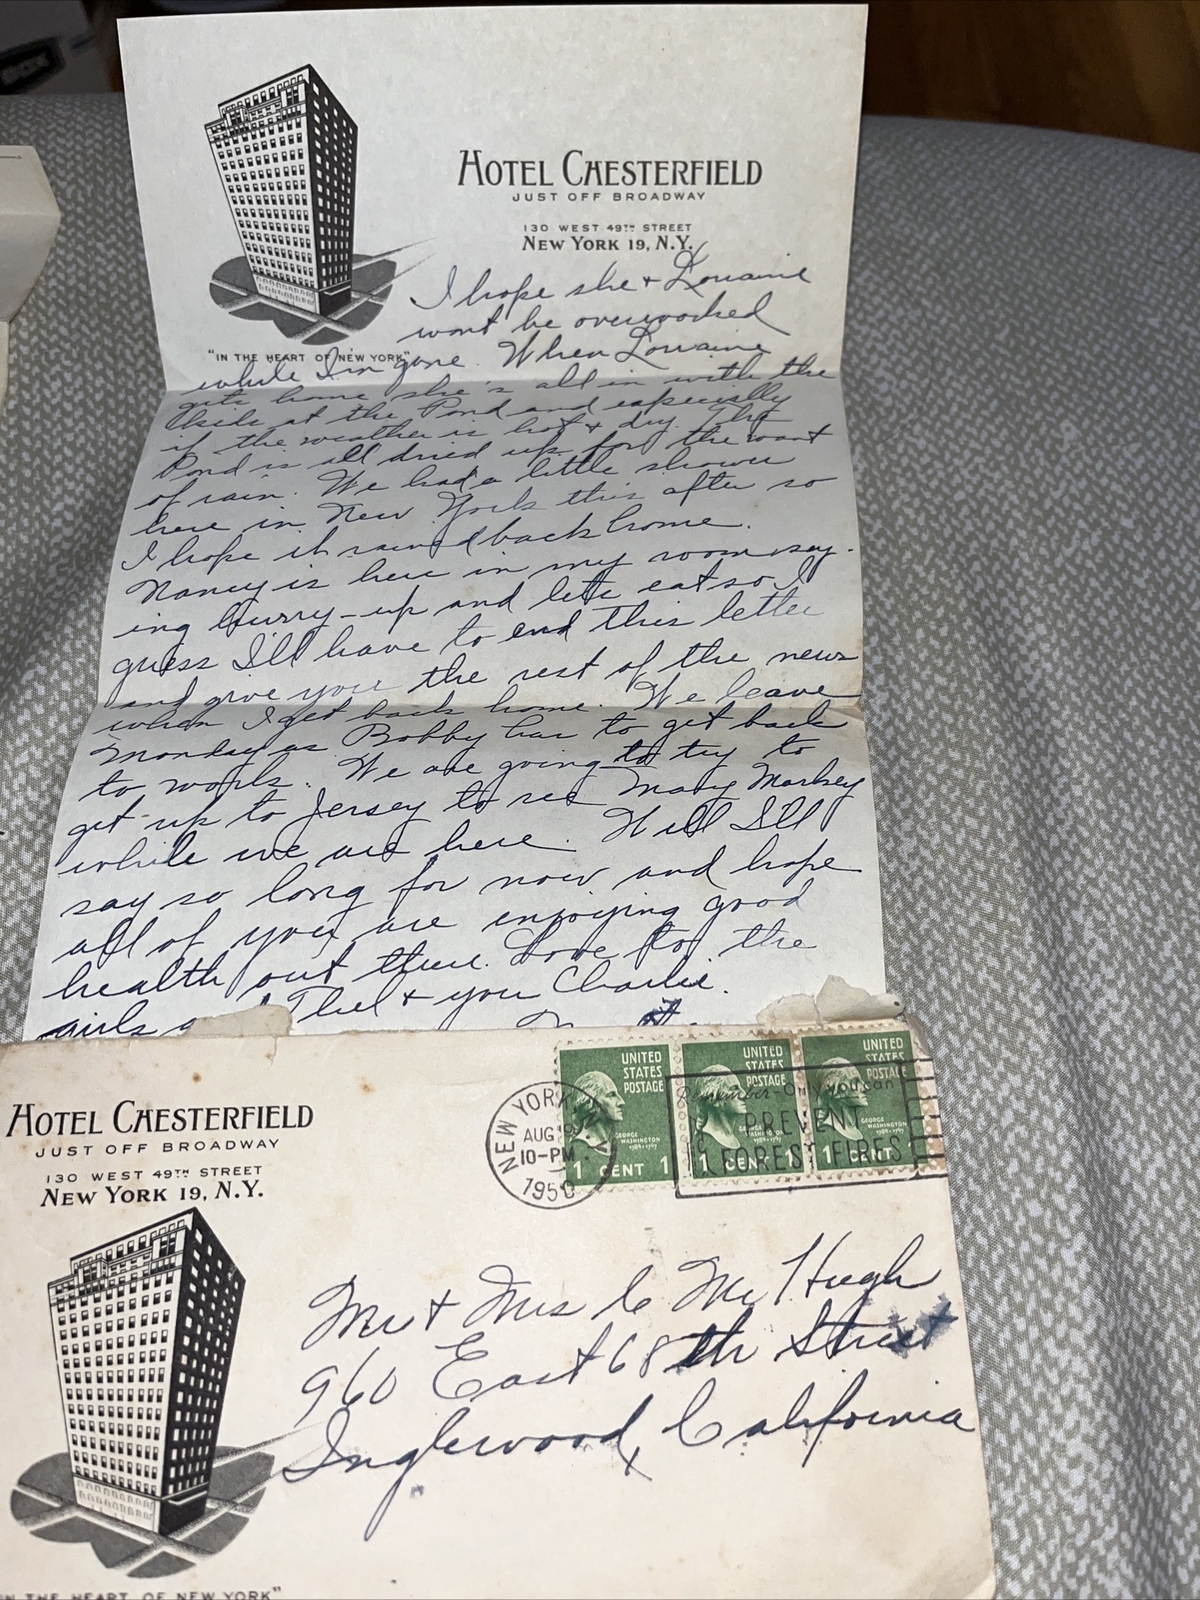 HOTEL CHESTERFIELD
JUST OFF BROADWAY
130 WEST 49TH STREET
NEW YORK 19, N.Y.
"IN THE HEART OF NEW YORK"
I hope she & Lorraine
wont be overworked
while I'm gone. When Lorraine
gets home she's all in with the
Kids at the Pond and especially
if the weather is hot & dry. The
Pond is all dried up for the want
of rain. We had a little shower
here in New York this after so
I hope it rained back home.
Nancy is here in my room say-
ing hurry-up and lets eat so I
guess I'll have to end this letter
and give you the rest of the news
when I get back home. We leave
Monday as Bobby has to get back
to work. We are going to try to
get up to Jersey to see Mary Markey
while we are here. Well I'll
say so long for now and hope
all of you are enjoying good
health out there. Love to the
girls Thel & you Charlie.
HOTEL CHESTERFIELD
JUST OFF BROADWAY
130 WEST 49TH STREET
NEW YORK 19, N.Y.
IN THE HEART OF NEW YORK"
NEW YORK
AUG
10-PM
1950
UNITED STATES POSTAGE
GEORGE WASHINGTON
1789-1797
1 CENT 1
UNITED STATES POSTAGE
GEORGE WASHINGTON
1789-1797
1 CENT 1
UNITED STATES POSTAGE
GEORGE WASHINGTON
1 CENT
Remember-Only you can
PREVENT
FOREST FIRES
Mr & Mrs C Mc Hugh
960 East 68th Street
Inglewood, California